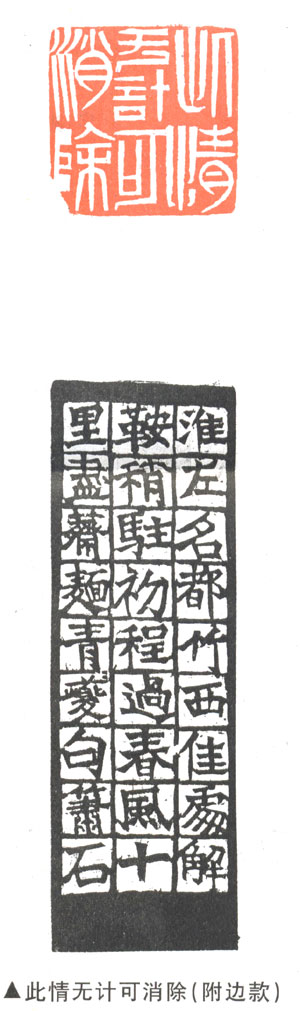 此情
无計可
消除
淮左名都竹西佳處解
鞍稍駐初程過春風十
里盡薺麵青夔句簫石
▲此情无计可消除(附边款)